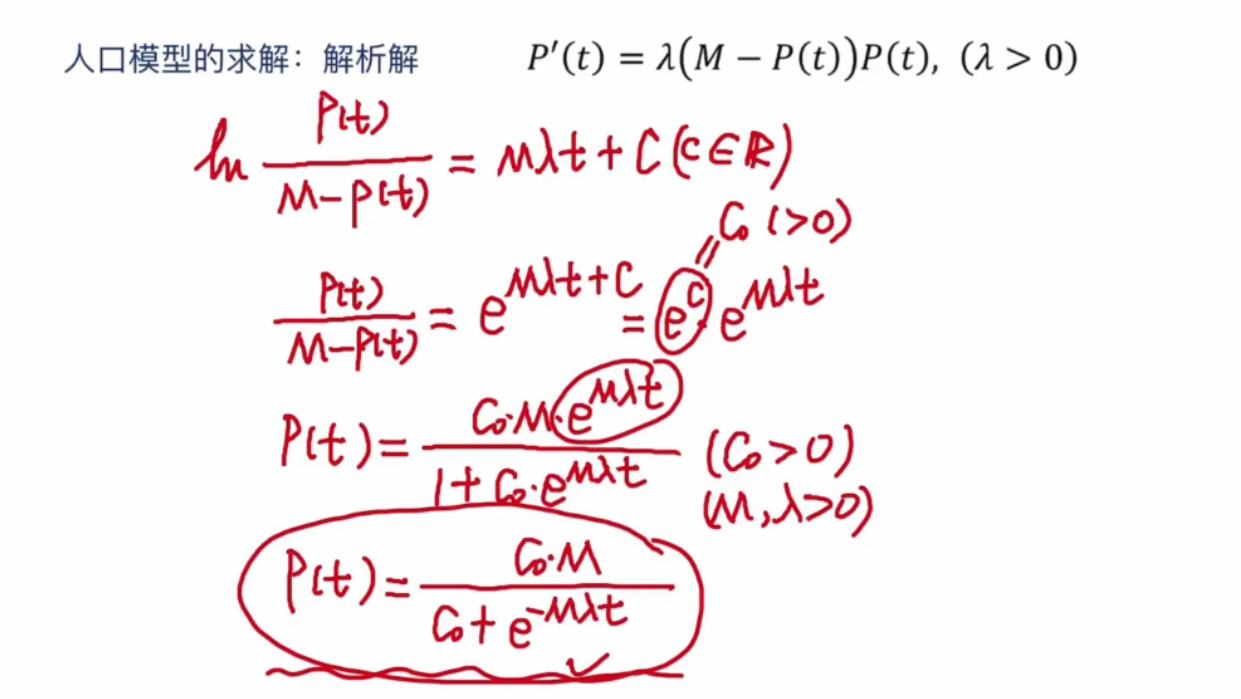 人口模型的求解：解析解 P′(t) = λ(M − P(t))P(t), (λ > 0)
ln P(t)/(M−P(t)) = Mλt + C (C∈ℝ)
C₀ (>0)
P(t)/(M−P(t)) = e^(Mλt+C) = e^C · e^(Mλt)
P(t) = C₀·M·e^(Mλt)/(1+C₀·e^(Mλt)) (C₀>0)
(M,λ>0)
P(t) = C₀·M/(C₀+e^(−Mλt))